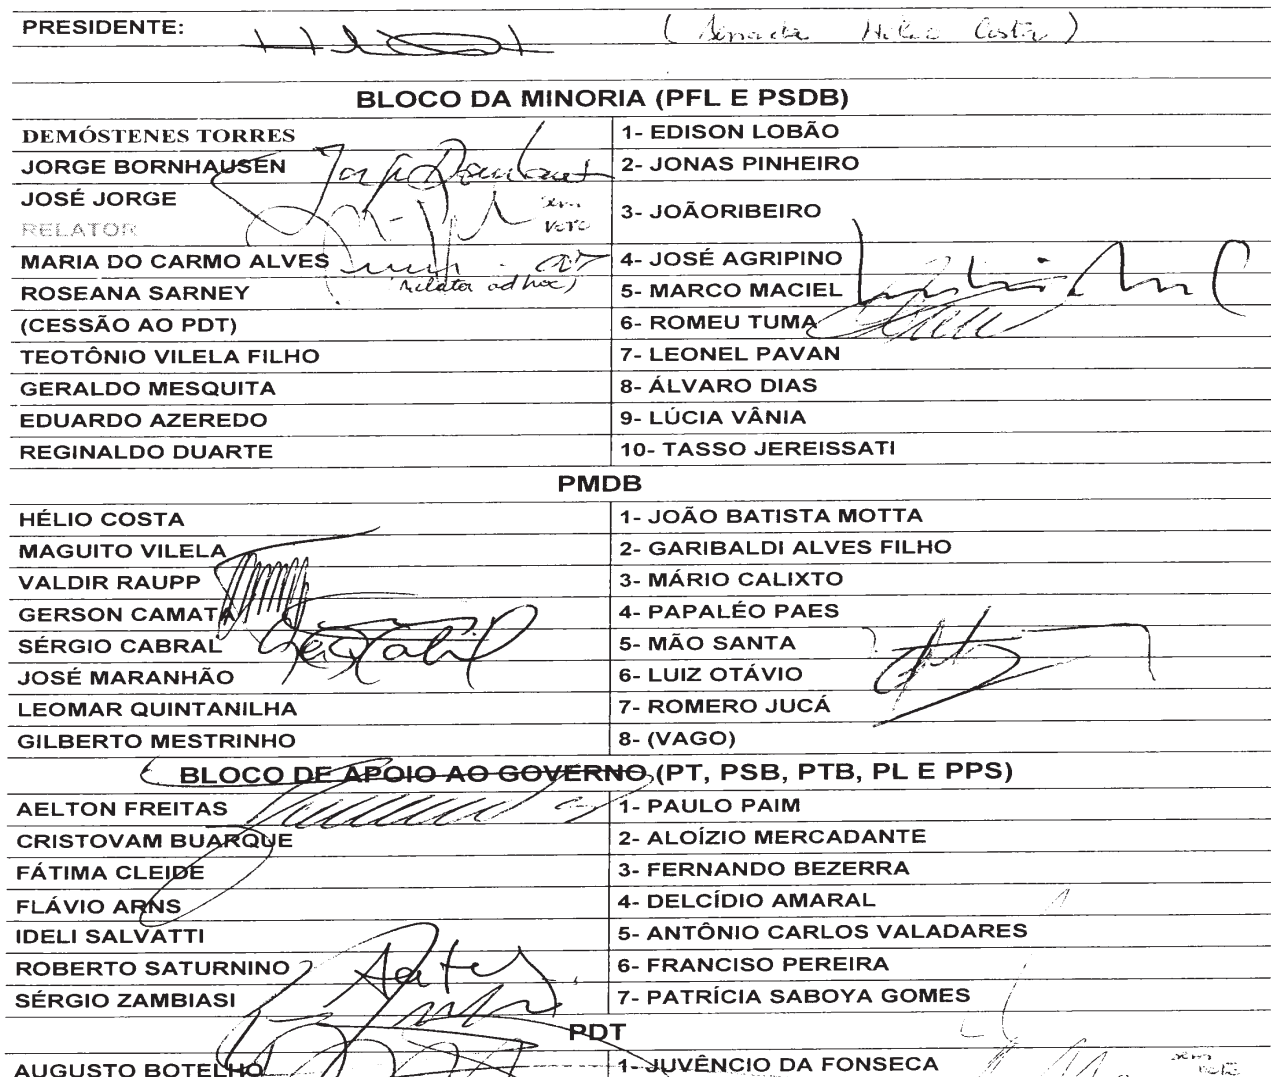 PRESIDENTE: (Senador Hélio Costa)
BLOCO DA MINORIA (PFL E PSDB)
DEMÓSTENES TORRES 1- EDISON LOBÃO
JORGE BORNHAUSEN 2- JONAS PINHEIRO
JOSÉ JORGE sem voto
RELATOR 3- JOÃORIBEIRO
MARIA DO CARMO ALVES 4- JOSÉ AGRIPINO
ROSEANA SARNEY (relator ad hoc) 5- MARCO MACIEL
(CESSÃO AO PDT) 6- ROMEU TUMA
TEOTÔNIO VILELA FILHO 7- LEONEL PAVAN
GERALDO MESQUITA 8- ÁLVARO DIAS
EDUARDO AZEREDO 9- LÚCIA VÂNIA
REGINALDO DUARTE 10- TASSO JEREISSATI
PMDB
HÉLIO COSTA 1- JOÃO BATISTA MOTTA
MAGUITO VILELA 2- GARIBALDI ALVES FILHO
VALDIR RAUPP 3- MÁRIO CALIXTO
GERSON CAMATA 4- PAPALÉO PAES
SÉRGIO CABRAL 5- MÃO SANTA
JOSÉ MARANHÃO 6- LUIZ OTÁVIO
LEOMAR QUINTANILHA 7- ROMERO JUCÁ
GILBERTO MESTRINHO 8- (VAGO)
BLOCO DE APOIO AO GOVERNO (PT, PSB, PTB, PL E PPS)
AELTON FREITAS 1- PAULO PAIM
CRISTOVAM BUARQUE 2- ALOÍZIO MERCADANTE
FÁTIMA CLEIDE 3- FERNANDO BEZERRA
FLÁVIO ARNS 4- DELCÍDIO AMARAL
IDELI SALVATTI 5- ANTÔNIO CARLOS VALADARES
ROBERTO SATURNINO 6- FRANCISO PEREIRA
SÉRGIO ZAMBIASI 7- PATRÍCIA SABOYA GOMES
PDT
AUGUSTO BOTELHO 1- JUVÊNCIO DA FONSECA sem voto